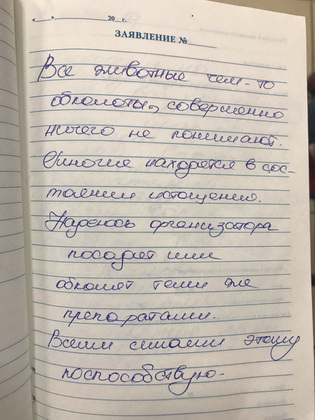 « » 20 г.
ЗАЯВЛЕНИЕ №
Все животные чем-то
обколоты, совершенно
ничего не понимают.
Многие находятся в сос-
тоянии истощения.
Надеюсь организатора
посадят или
обколят теми же
препаратами.
Всеми силами этому
поспособствую.